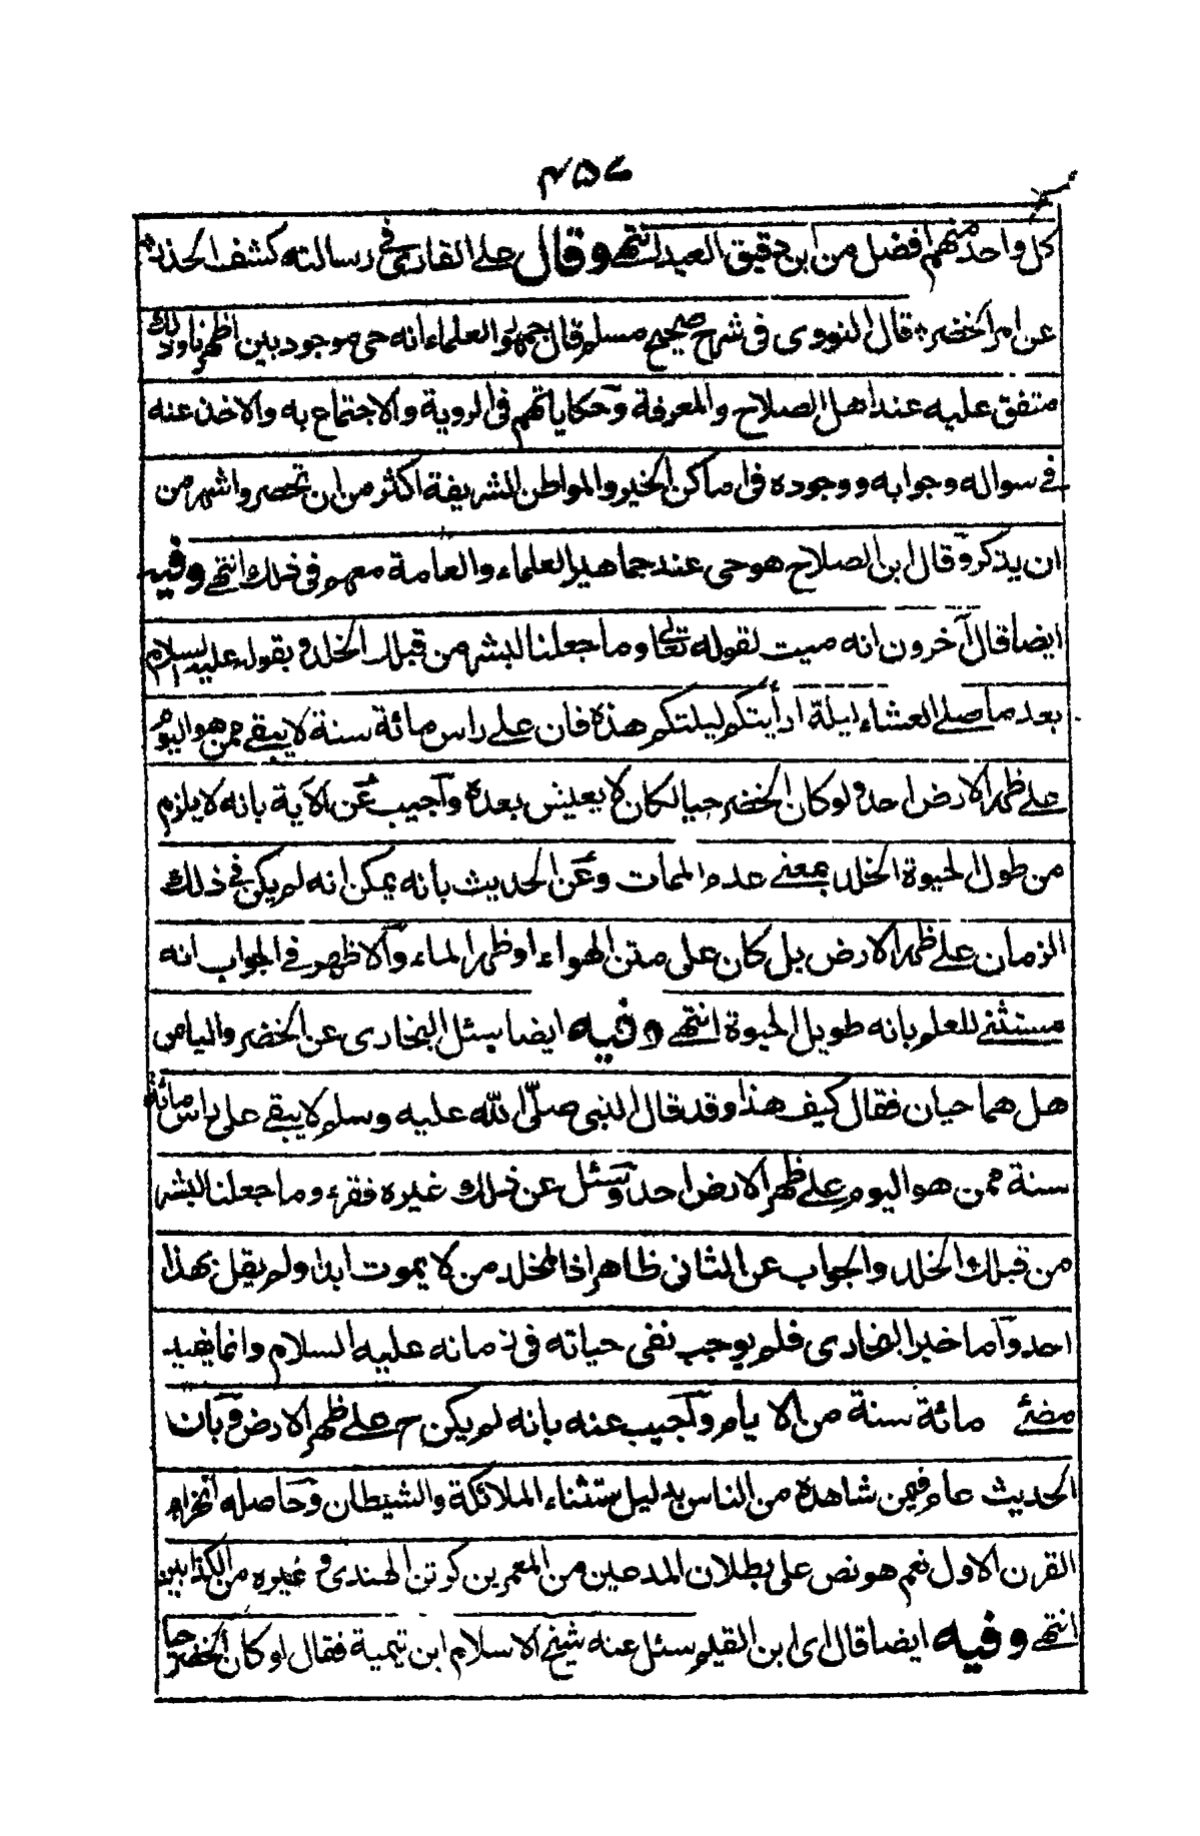 ۴۵۷
كل واحد منهم افضل من ابن دقيق العيد انتهى وقال على القارى فى رسالته كشف الخدر
عن امر الخضر قال النووى فى شرح صحيح مسلم قال جمهور العلماء انه حى موجود بين اظهرنا وذلك
متفق عليه عند اهل الصلاح والمعرفة وحكاياتهم فى الروية والاجتماع به والاخذ عنه
فى سواله وجوابه ووجوده فى اماكن الخير والمواطن الشريفة اكثر من ان تحصر واشهر من
ان يذكر وقال ابن الصلاح هو حى عند جماهير العلماء والعامة معهم فى ذلك انتهى وفيه
ايضا قال آخرون انه ميت لقوله تعالى وما جعلنا لبشر من قبلك الخلد وبقوله عليه السلام
بعد ما صلى العشاء ليلة ارأيتكم ليلتكم هذه فان على راس مائة سنة لا يبقى ممن هو اليوم
على ظهر الارض احد ولو كان الخضر حيا لكان لا يعيش بعده وآجيب عن الآية بانه لا يلزم
من طول الحيوة الخلد بمعنى عدم الممات وعن الحديث بانه يمكن انه لم يكن فى ذلك
الزمان على ظهر الارض بل كان على متن الهواء او ظهر الماء والاظهر فى الجواب انه
مستثنى للعلم بانه طويل الحيوة انتهى وفيه ايضا سئل البخارى عن الخضر والياس
هل هما حيان فقال كيف هذا وقد قال النبى صلى الله عليه وسلم لا يبقى على راس مائة
سنة ممن هو اليوم على ظهر الارض احد وسئل عن ذلك غيره فقرء وما جعلنا لبشر
من قبلك الخلد والجواب عن الثانى ظاهر اذ المخلد من لا يموت ابدا ولم يقل بهذا
احد واما خبر البخارى فلم يوجب نفى حياته فى زمانه عليه السلام وانما يفيد
مضئ مائة سنة من الايام وآجيب عنه بانه لم يكن ح على ظهر الارض وبان
الحديث عام فيمن شاهده من الناس بدليل ستثناء الملائكة والشيطان وحاصله انخرام
القرن الاول نعم هو نص على بطلان المدعين من المعمرين كرتن الهندى وغيره من الكذابين
انتهى وفيه ايضا قال اى ابن القيم سئل عنه شيخ الاسلام ابن تيمية فقال لو كان الخضر حيا